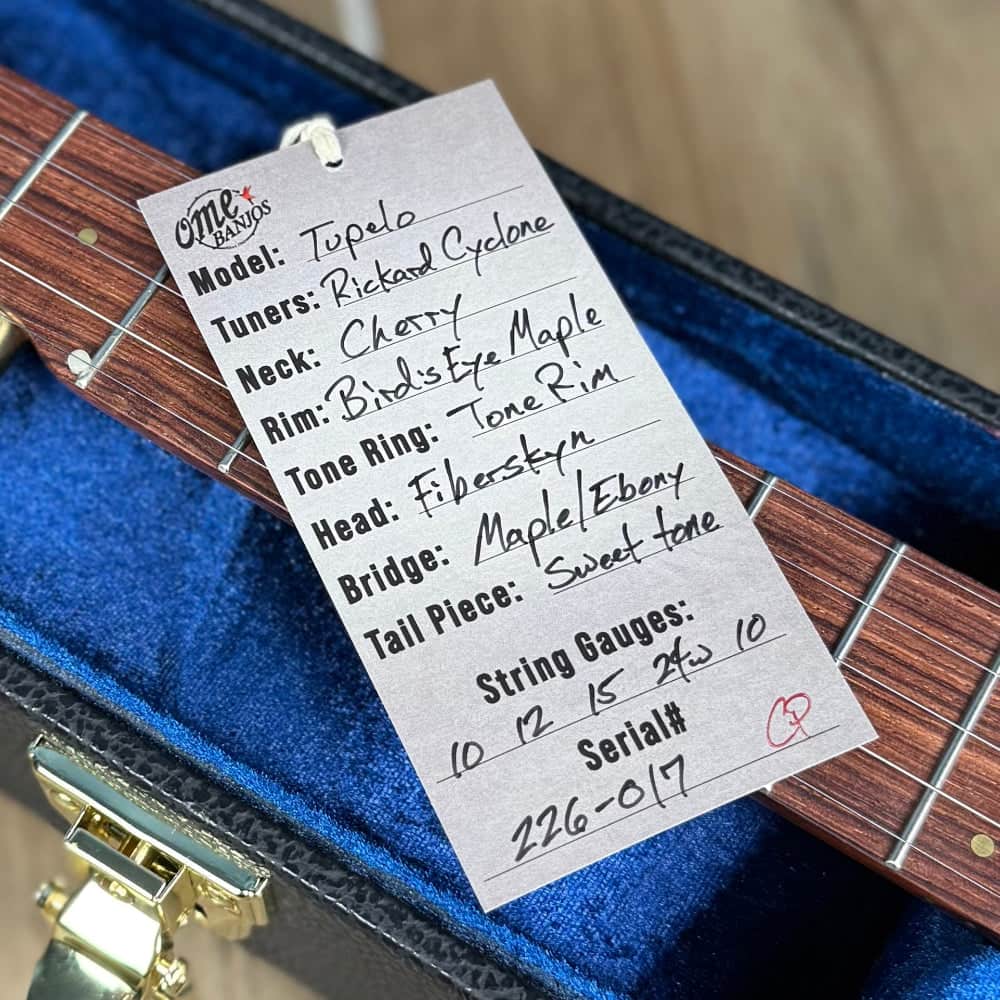 Ome
BANJOS
Model: Tupelo
Tuners: Rickard Cyclone
Neck: Cherry
Rim: Bird's Eye Maple
Tone Ring: Tone Rim
Head: Fiberskyn
Bridge: Maple/Ebony
Tail Piece: Sweet tone
String Gauges:
10 12 15 24w 10
Serial#
226-017